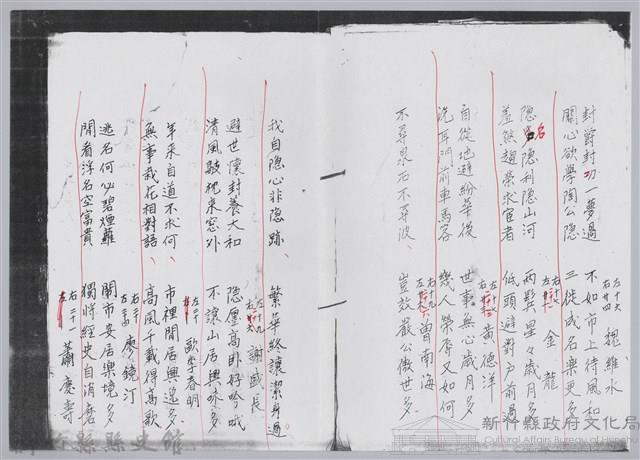 封爵封功一夢過 不如市上待風和
左十六 右廿四 魏維水
閒心欲學陶公隱 三徙成名樂更多
金龍
隱名隱利隱山河 兩鬢星々歲月多
羞煞趨榮求宦者 低頭避對戶前過
黃德洋
自從地避紛華後 世事無心歲月多
洗耳門前車馬客 幾人榮辱又如何
曾南海
不尋泉石不尋波、 豈效嚴公傲世多、
我自隱心非隱跡、 繁華終讓潔身過。
謝盛長
避世懷封養太和 隱廛高臥好吟哦
清風敲梘來窓外 不讓山居興味多
歐李春明
年來自道不求何、 市裡閒居興逸多、
無事栽花相對語、 高風千載得高歌
廖鏡汀
逃名何必碧煙蘿 鬧市安居樂境多
閒看浮名空富貴 獨將經史自消磨
右二十一 蕭應壽
新竹縣縣史館
新竹縣政府文化局
Cultural Affairs Bureau of Hsinchu